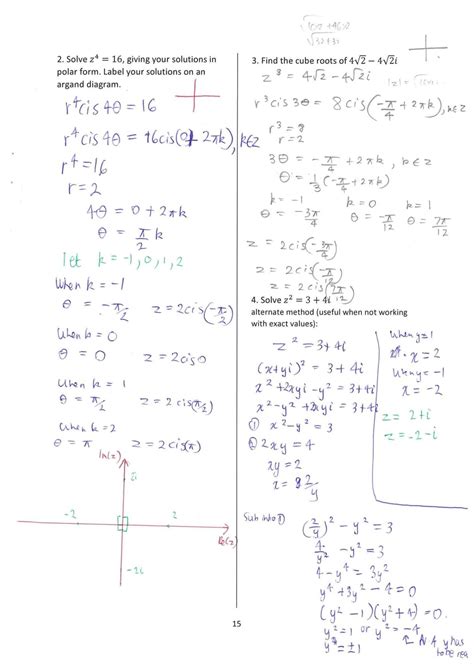 2. Solve z⁴ = 16, giving your solutions in
polar form. Label your solutions on an
argand diagram.
r⁴cis4θ = 16
r⁴cis4θ = 16cis(0 + 2πk), k∈Z
r⁴ = 16
r = 2
4θ = 0 + 2πk
θ = π/2 k
let k = -1, 0, 1, 2
When k = -1
θ = -π/2 z = 2cis(-π/2)
When k = 0
θ = 0 z = 2cis0
When k = 1
θ = π/2 z = 2cis(π/2)
When k = 2
θ = π z = 2cis(π)
Im(z)
2i
-2 2
Re(z)
-2i
3. Find the cube roots of 4√2 − 4√2i
z³ = 4√2 - 4√2i
r³cis3θ = 8cis(-π/4 + 2πk), k∈Z
r³ = 8
r = 2
3θ = -π/4 + 2πk, k∈Z
θ = 1/3(-π/4 + 2πk)
k = -1 k = 0 k = 1
θ = -3π/4 θ = -π/12 θ = 7π/12
z = 2cis(-3π/4)
z = 2cis(-π/12)
z = 2cis(7π/12)
4. Solve z² = 3 + 4i
alternate method (useful when not working
with exact values):
z² = 3+4i
(x+yi)² = 3 + 4i
x² + 2xyi - y² = 3 + 4i
x² - y² + 2xyi = 3 + 4i
① x² - y² = 3
② 2xy = 4
xy = 2
x = 2/y
Sub into ①
(2/y)² - y² = 3
4/y² - y² = 3
4 - y⁴ = 3y²
y⁴ + 3y² - 4 = 0
(y² - 1)(y² + 4) = 0
y² = 1 or y² = -4
y = ±1
NA y has
to be real
When y = 1
x = 2
When y = -1
x = -2
z = 2+i
z = -2-i
15